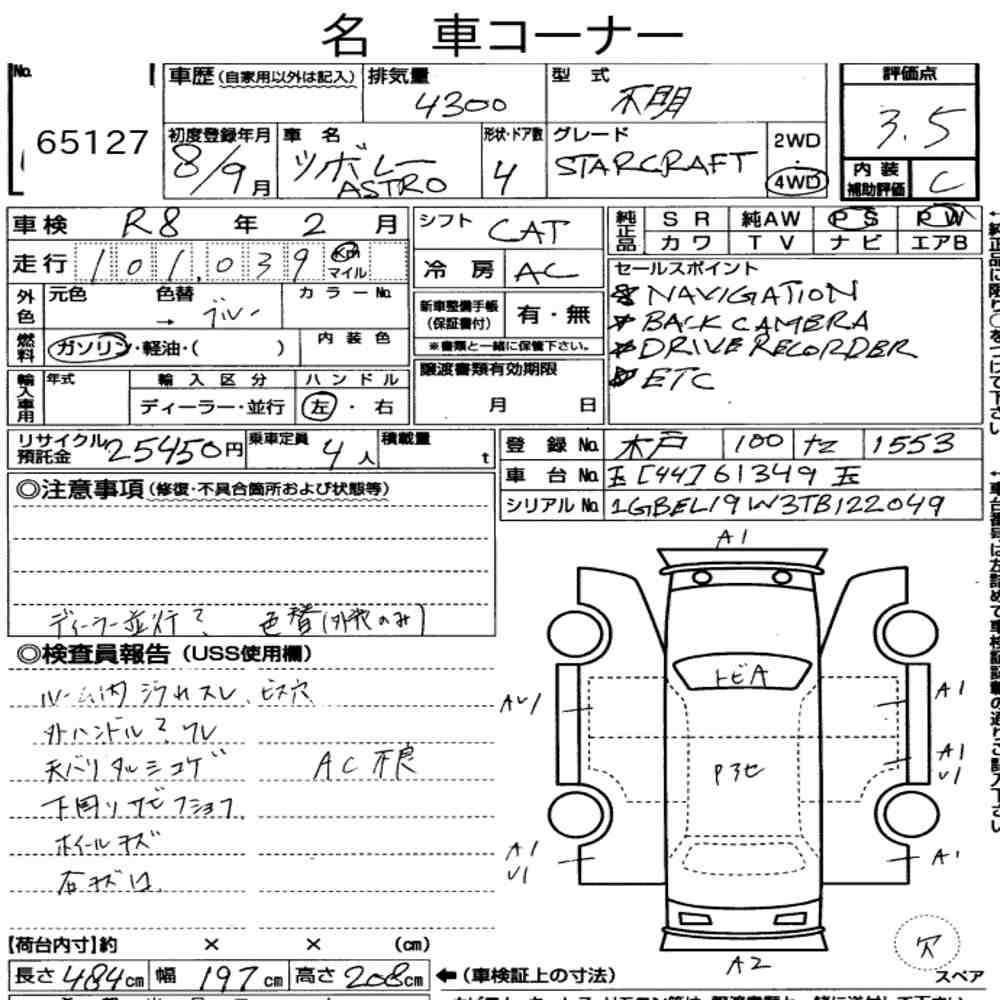 名 車コーナー
No.
65127
車歴(自家用以外は記入)
排気量
4300
型 式
不明
評価点
3.5
初度登録年月
8/9月
車 名
シボレー
ASTRO
形状・ドア数
4
グレード
STARCRAFT
2WD
・
4WD
内 装
補助評価
C
車検 R8 年 2 月
シフト
CAT
純正品
S R 純AW P S P W
カ ワ T V ナ ビ エアB
走行 101,039 Km
マイル
冷 房 AC
セールスポイント
NAVIGATION
BACK CAMERA
DRIVE RECORDER
ETC
外色
元色 色替 カ ラ ー No.
→ ブルー
新車整備手帳
(保証書付)
有・無
※書類と一緒に保管下さい。
燃料
ガソリン・軽油・( )
内 装 色
輸入車用
年式
輸 入 区 分
ディーラー・並行
ハ ン ド ル
左 ・ 右
譲渡書類有効期限
月 日
リサイクル
預託金
25450円
乗車定員
4人
積載量
t
登 録 No. 水戸 100 な 1553
車 台 No. 玉[44]61349玉
シリアル No. 1GBEL19W3TB122049
◎注意事項(修復・不具合箇所および状態等)
ディーラー並行? 色替(外装のみ)
◎検査員報告(USS使用欄)
ルーム内 ヨゴれスレ、ビス穴
外ハンドル ワレ
天バリタルミコゲ
AC不良
下回りサビ
ホイールキズ
A1
トビA
AU1
A1
A1
U1
A1
U1
A1
A2
穴
スペア
【荷台内寸】約 × × (cm)
長さ484cm 幅197cm 高さ208cm
←(車検証上の寸法)